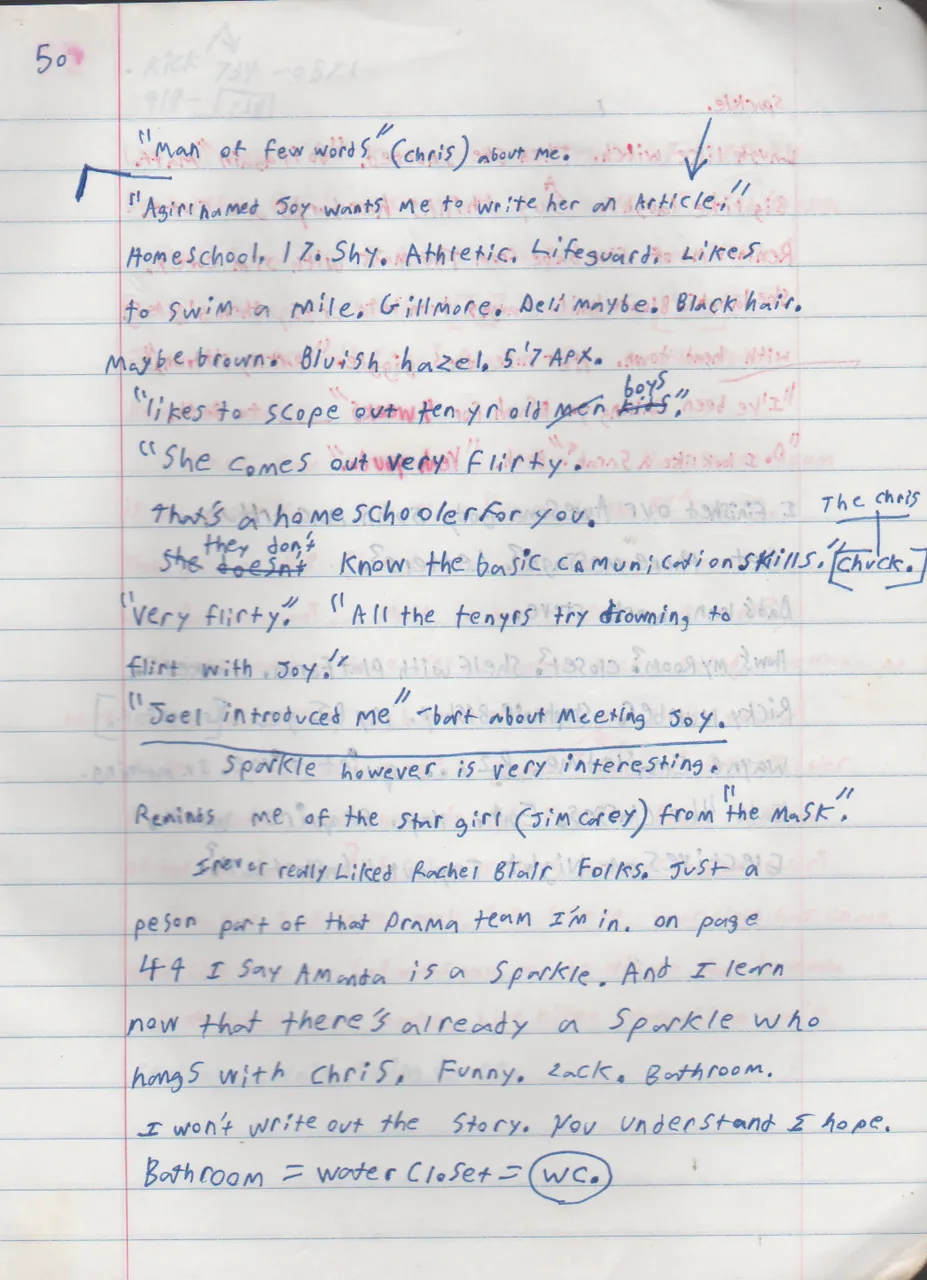 50
"Man of few words" (chris) about me.
"A girl named Joy wants me to write her an Article."
Homeschool. 17. Shy. Athletic. Lifeguard. Likes
to swim a mile. Gillmore. Deli maybe. Black hair.
Maybe brown. Bluish hazel. 5'7 Apx.
boys
"likes to scope out ten yr old men kids."
"She comes out very flirty.
That's a homeschooler for you.
The Chris
they don't
She doesnt know the basic comunication skills." [Chuck.]
"Very flirty." "All the ten yrs try drowning to
flirt with Joy."
"Joel introduced me" -bart about meeting Joy.
Sparkle however is very interesting.
Reminds me of the star girl (Jim Carey) from "the Mask".
I never really Liked Rachel Blair Folks. Just a
peson part of that Drama team I'm in. on page
44 I say Amanda is a Sparkle. And I learn
now that there's already a Sparkle who
hangs with Chris. Funny. Zack. Bathroom.
I won't write out the story. You understand I hope.
Bathroom = water Closet = WC.